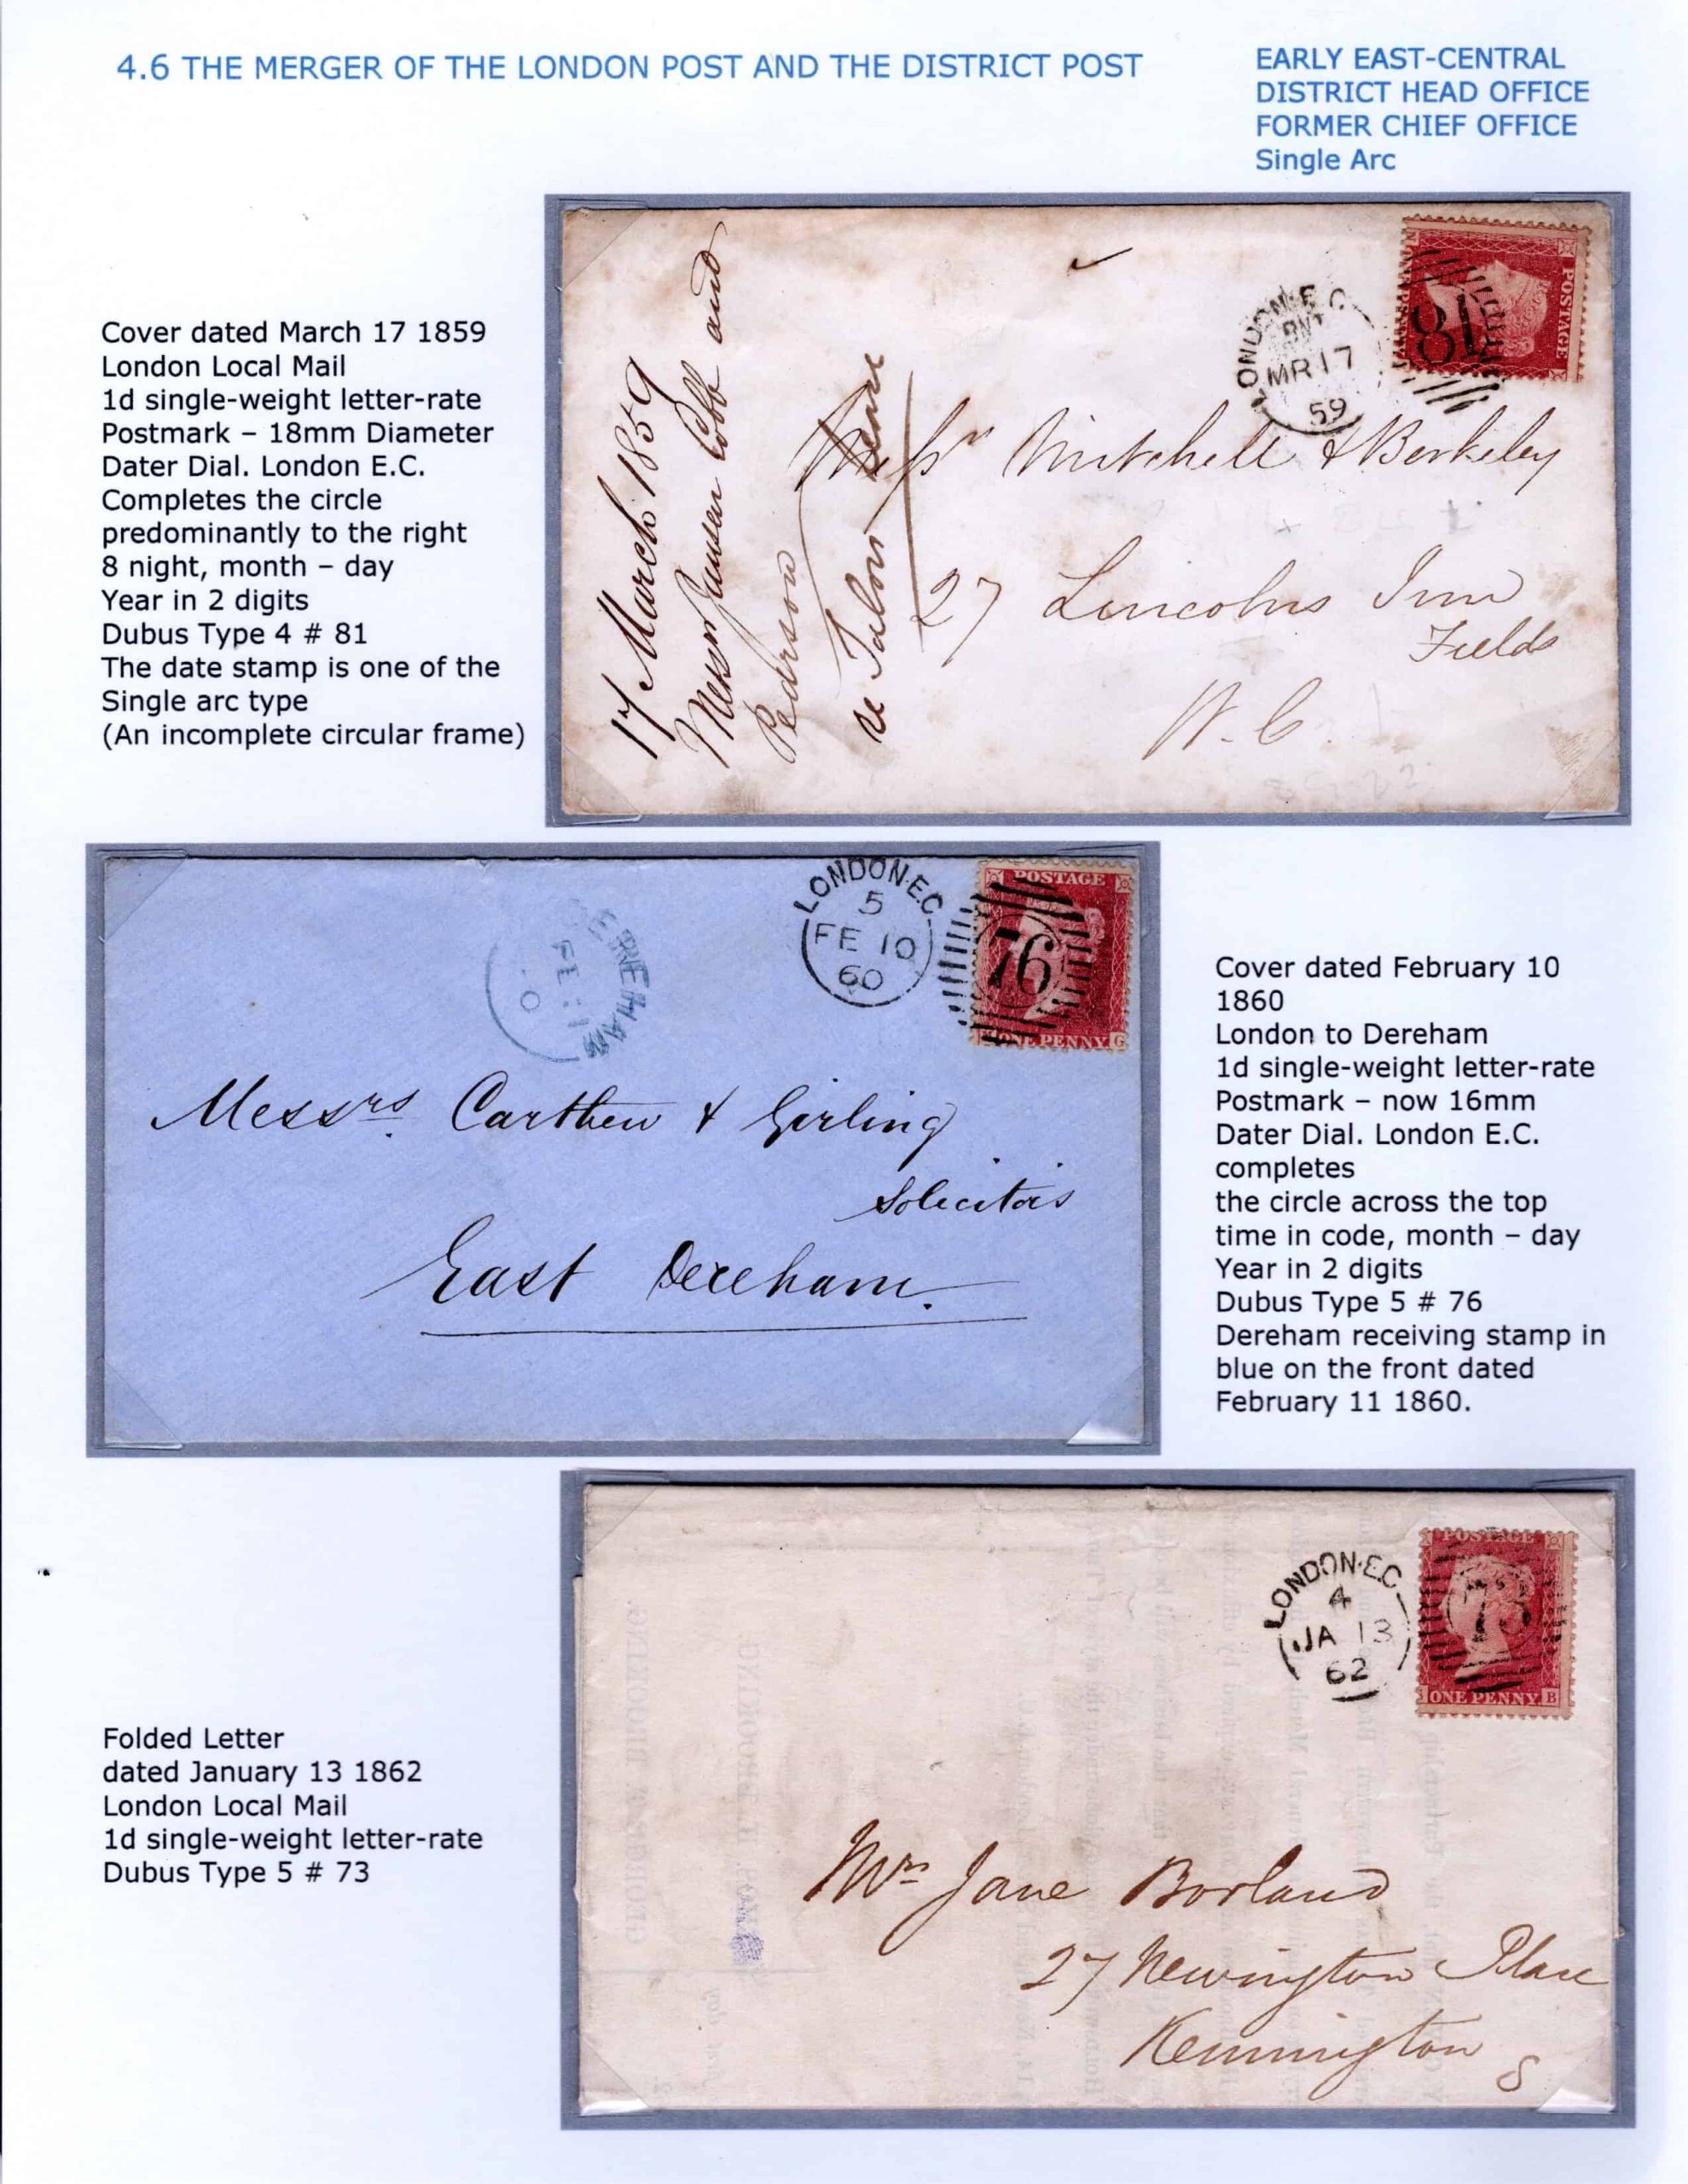 4.6 THE MERGER OF THE LONDON POST AND THE DISTRICT POST
EARLY EAST-CENTRAL
DISTRICT HEAD OFFICE
FORMER CHIEF OFFICE
Single Arc
Cover dated March 17 1859
London Local Mail
1d single-weight letter-rate
Postmark – 18mm Diameter
Dater Dial. London E.C.
Completes the circle
predominantly to the right
8 night, month – day
Year in 2 digits
Dubus Type 4 # 81
The date stamp is one of the
Single arc type
(An incomplete circular frame)
17 March 1859
Messrs Jansen Cobb and
Pederson
re
LONDON·E.C
MR 17
59
81
POSTAGE
Messrs Mitchell & Berkeley
27 Lincolns Inn
Fields
W.C.
LONDON·E.C
5
FE 10
60
76
POSTAGE
ONE PENNY G
EREHAM
FE 11
Messrs Carthew & Girling
Solicitors
East Dereham.
Cover dated February 10
1860
London to Dereham
1d single-weight letter-rate
Postmark – now 16mm
Dater Dial. London E.C.
completes
the circle across the top
time in code, month – day
Year in 2 digits
Dubus Type 5 # 76
Dereham receiving stamp in
blue on the front dated
February 11 1860.
LONDON·E.C
4
JA 13
62
73
POSTAGE
ONE PENNY B
Mrs Jane Borland
27 Newington Place
Kennington
S
Folded Letter
dated January 13 1862
London Local Mail
1d single-weight letter-rate
Dubus Type 5 # 73